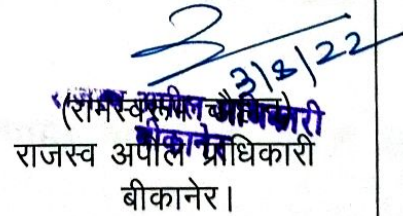 3/8/22
(रामस्वरूप चौहान)
राजस्व अपील प्राधिकारी
बीकानेर
राजस्व अपील प्राधिकारी
बीकानेर।